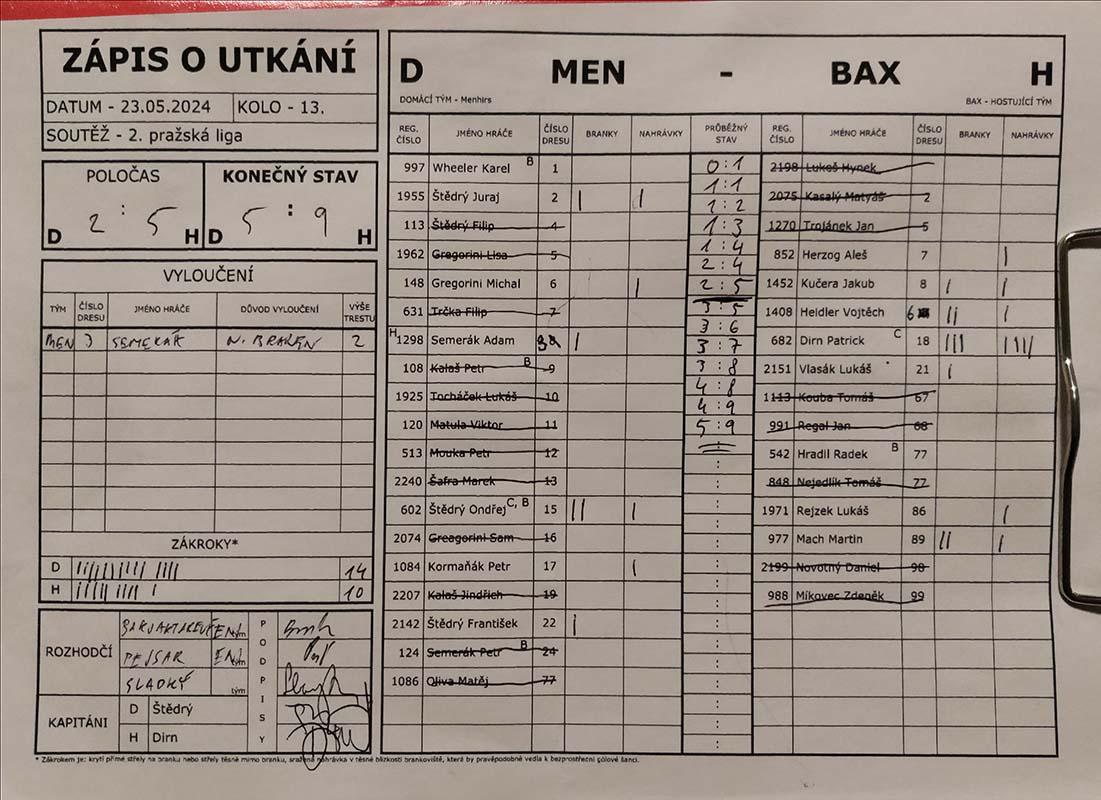 ZÁPIS O UTKÁNÍ
DATUM - 23.05.2024 KOLO - 13.
SOUTĚŽ - 2. pražská liga
POLOČAS KONEČNÝ STAV
D 2 : 5 H D 5 : 9 H
VYLOUČENÍ
TÝM ČÍSLO DRESU JMÉNO HRÁČE DŮVOD VYLOUČENÍ VÝŠE TRESTU
MEN 3 SEMERÁK 2
ZÁKROKY*
D 14
H 10
ROZHODČÍ
tým
PEJSAR tým
SLADKÝ tým
PODPISY
KAPITÁNI
D Štědrý
H Dirn
D MEN - BAX H
DOMÁCÍ TÝM - Menhirs BAX - HOSTUJÍCÍ TÝM
REG. ČÍSLO JMÉNO HRÁČE ČÍSLO DRESU BRANKY NAHRÁVKY PRŮBĚŽNÝ STAV REG. ČÍSLO JMÉNO HRÁČE ČÍSLO DRESU BRANKY NAHRÁVKY
997 Wheeler Karel B 1
1955 Štědrý Juraj 2 | |
113 Štědrý Filip 4
1962 Gregorini Lisa 5
148 Gregorini Michal 6 |
631 Trčka Filip 7
H 1298 Semerák Adam |
108 Kalaš Petr B 9
1925 Tocháček Lukáš 10
120 Matula Viktor 11
513 Mouka Petr 12
2240 Šafra Marek 13
602 Štědrý Ondřej C, B 15 || |
2074 Greagorini Sam 16
1084 Kormaňák Petr 17 |
2207 Kalaš Jindřich 19
2142 Štědrý František 22 |
124 Semerák Petr B 24
1086 Oliva Matěj 77
0:1
1:1
1:2
1:3
1:4
2:4
2:5
3:5
3:6
3:7
3:8
4:8
4:9
5:9
2198 Lukeš Hynek
2075 Kasalý Matyáš 2
1270 Trojánek Jan 5
852 Herzog Aleš 7 |
1452 Kučera Jakub 8 | |
1408 Heidler Vojtěch 6 || |
682 Dirn Patrick C 18 ||| ||||
2151 Vlasák Lukáš 21 |
1113 Kouba Tomáš 67
991 Regal Jan 68
542 Hradil Radek B 77
848 Nejedlík Tomáš 77
1971 Rejzek Lukáš 86 |
977 Mach Martin 89 || |
2199 Novotný Daniel 98
988 Míkovec Zdeněk 99
* Zákrokem je: krytí přímé střely na branku nebo střely těsně mimo branku, sražená nahrávka v těsné blízkosti brankoviště, která by pravěpodobně vedla k bezprostřední gólové šanci.